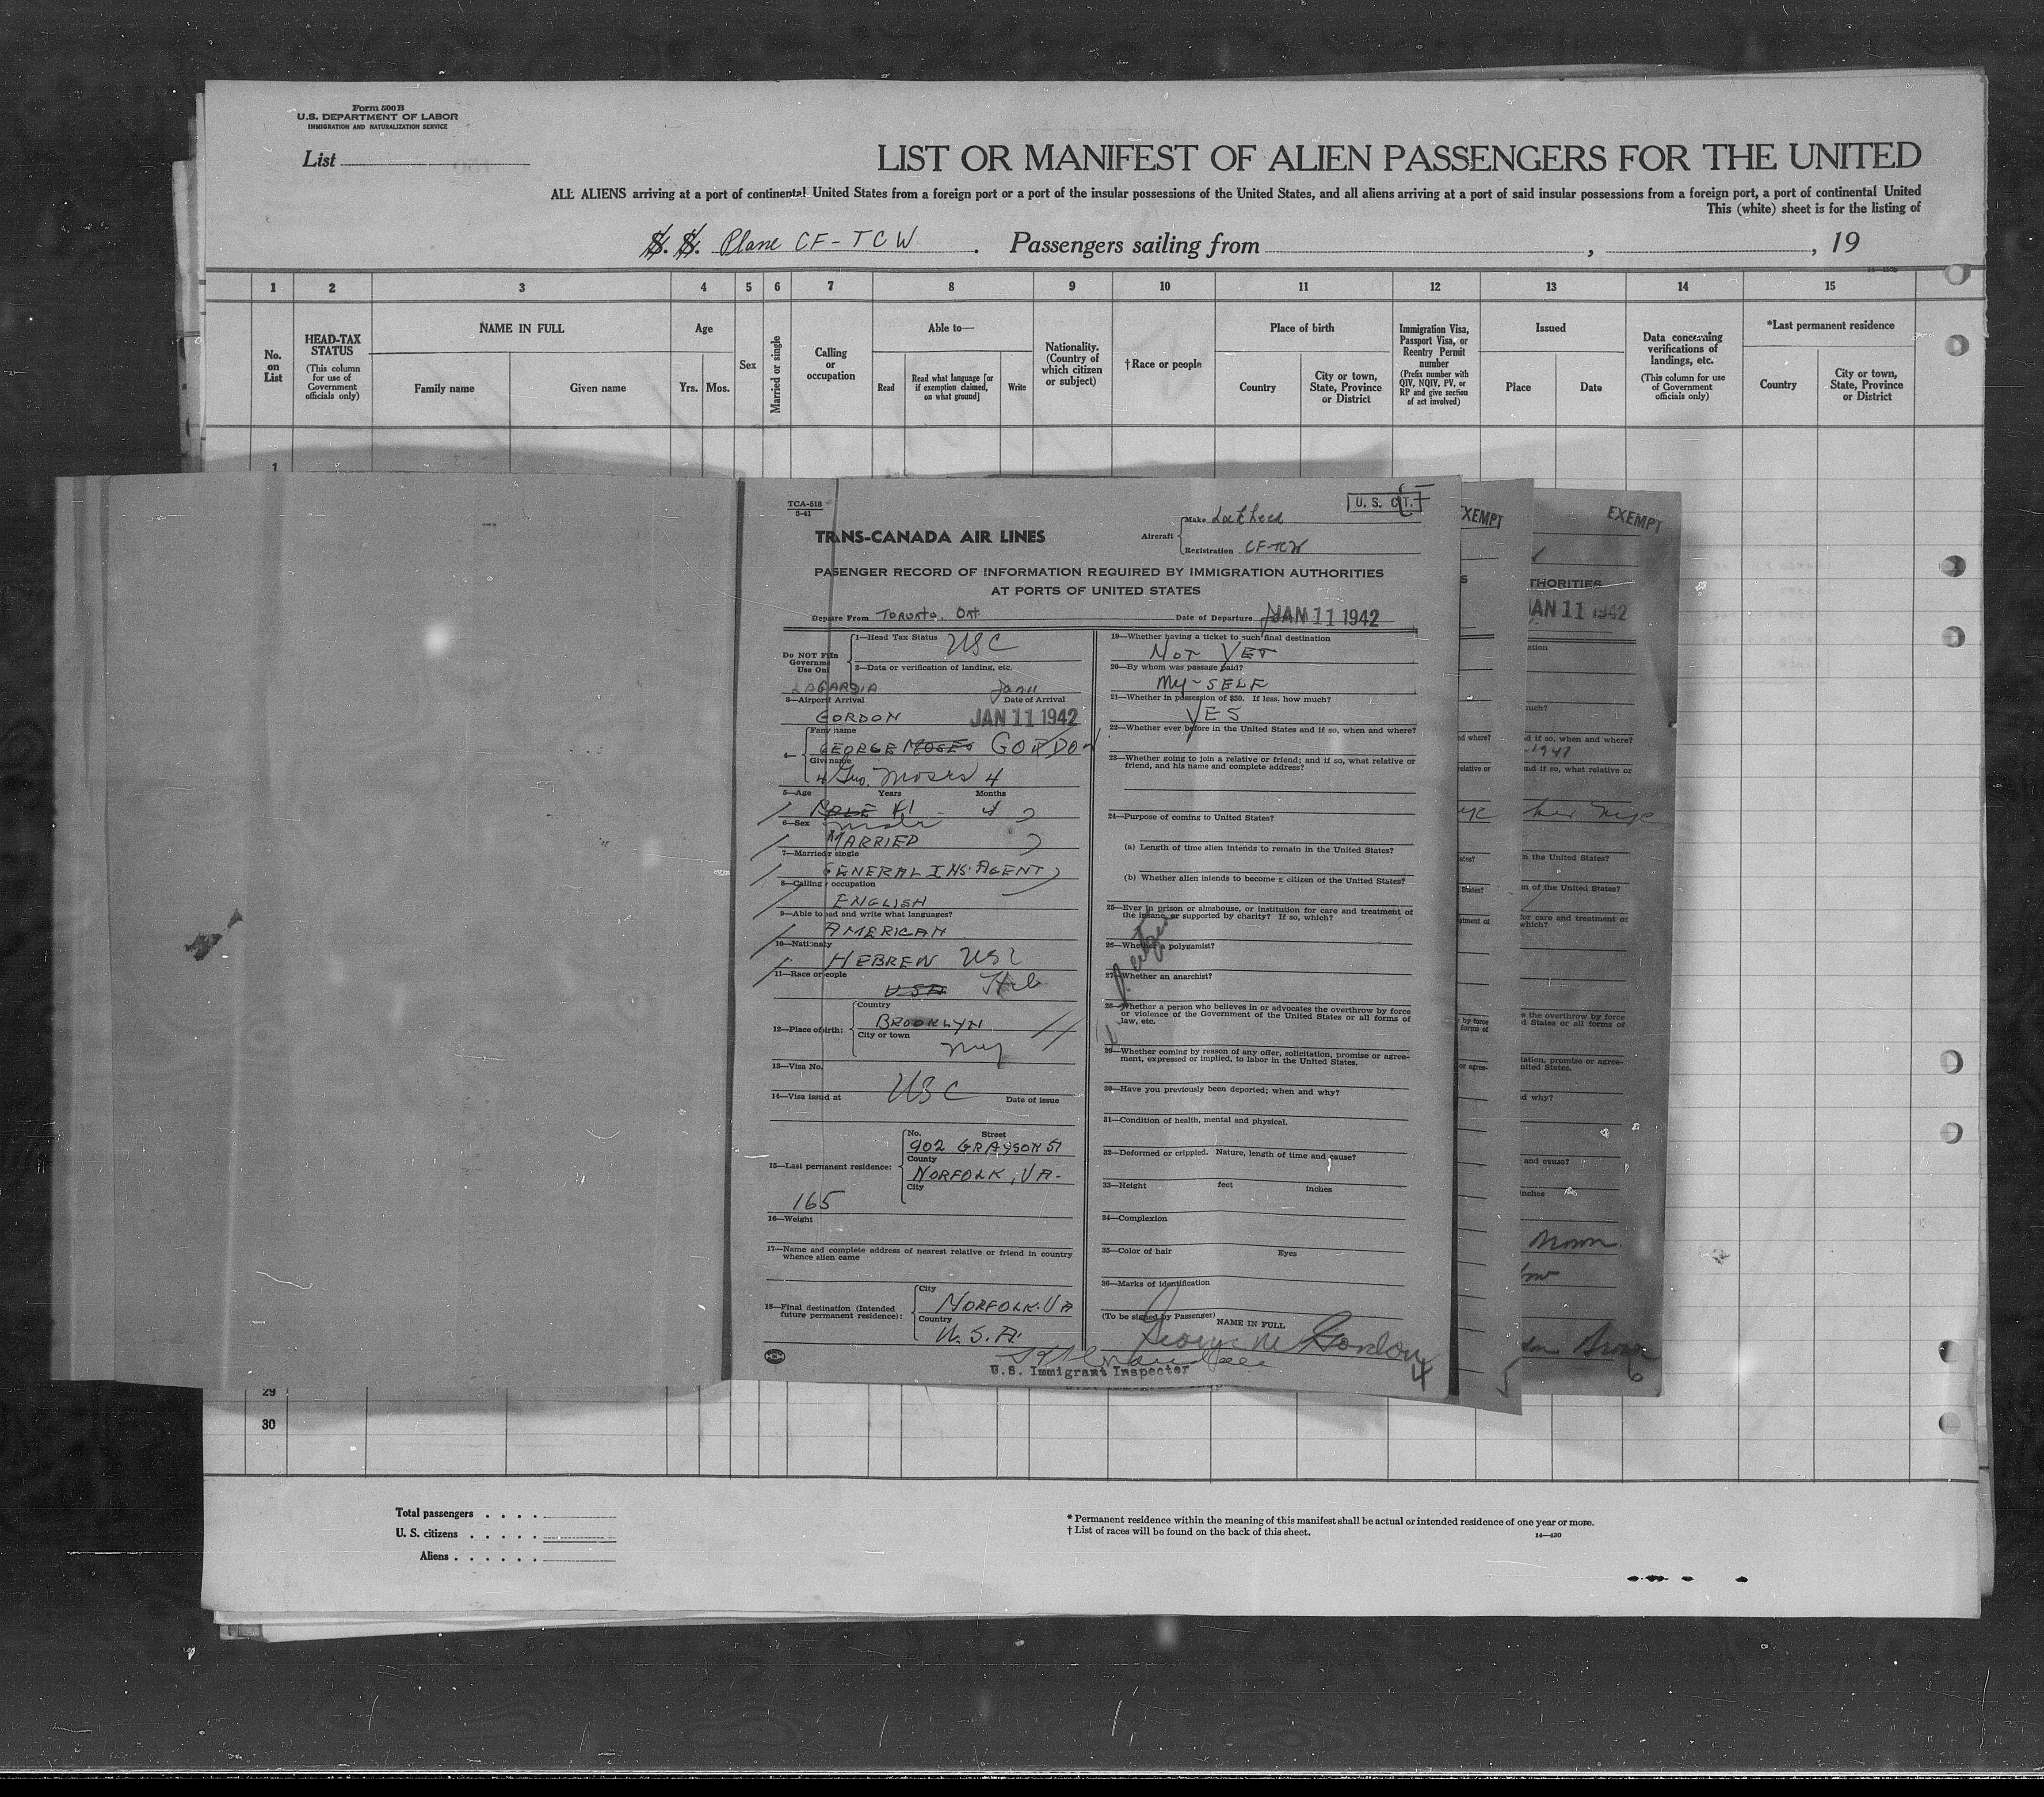 Form 500 B
U.S. DEPARTMENT OF LABOR
IMMIGRATION AND NATURALIZATION SERVICE
List
LIST OR MANIFEST OF ALIEN PASSENGERS FOR THE UNITED
ALL ALIENS arriving at a port of continental United States from a foreign port or a port of the insular possessions of the United States, and all aliens arriving at a port of said insular possessions from a foreign port, a port of continental United
This (white) sheet is for the listing of
S. S. Plane CF-TCW . Passengers sailing from , , 19
1 2 3 4 5 6 7 8 9 10 11 12 13 14 15
No. on List
HEAD-TAX STATUS
(This column for use of Government officials only)
NAME IN FULL
Family name
Given name
Age
Yrs. Mos.
Sex
Married or single
Calling or occupation
Able to—
Read
Read what language [or if exemption claimed, on what ground]
Write
Nationality. (Country of which citizen or subject)
†Race or people
Place of birth
Country
City or town, State, Province or District
Immigration Visa, Passport Visa, or Reentry Permit number
(Prefix number with QIV, NQIV, PV, or RP and give section of act involved)
Issued
Place
Date
Data concerning verifications of landings, etc.
(This column for use of Government officials only)
*Last permanent residence
Country
City or town, State, Province or District
1
TCA-518
5-41
U. S. CIT.
TRANS-CANADA AIR LINES
Aircraft
Make Lockheed
Registration CF-TCW
PASENGER RECORD OF INFORMATION REQUIRED BY IMMIGRATION AUTHORITIES
AT PORTS OF UNITED STATES
Depture From TORONTO, ONT
Date of Departure JAN 11 1942
Do NOT Fill In
Government
Use Only
1—Head Tax Status USC
2—Data or verification of landing, etc.
LAGARDIA Jan 11
3—Airport Arrival Date of Arrival
GORDON JAN 11 1942
4— Family name
GEORGE MOSES GORDON
Given name
4 Geo. Moses 4
5—Age Years Months
MALE 41 4
6—Sex male
MARRIED
7—Married or single
GENERAL INS. AGENT
8—Calling or occupation
ENGLISH
9—Able to read and write what languages?
AMERICAN
10—Nationality
HEBREW USC
11—Race or people
USA Heb
12—Place of birth:
Country
BROOKLYN
City or town
NY
13—Visa No.
USC
14—Visa issued at Date of issue
15—Last permanent residence:
No. Street
902 GRAYSON ST
County
NORFOLK, VA.
City
165
16—Weight
17—Name and complete address of nearest relative or friend in country whence alien came
18—Final destination (Intended future permanent residence):
City
NORFOLK, VA
Country
U.S.A.
U.S. Immigrant Inspector
19—Whether having a ticket to such final destination
NOT YET
20—By whom was passage paid?
MY-SELF
21—Whether in possession of $50. If less, how much?
YES
22—Whether ever before in the United States and if so, when and where?
23—Whether going to join a relative or friend; and if so, what relative or friend, and his name and complete address?
24—Purpose of coming to United States?
(a) Length of time alien intends to remain in the United States?
(b) Whether alien intends to become a citizen of the United States?
25—Ever in prison or almshouse, or institution for care and treatment of the insane, or supported by charity? If so, which?
26—Whether a polygamist?
27—Whether an anarchist?
28—Whether a person who believes in or advocates the overthrow by force or violence of the Government of the United States or all forms of law, etc.
29—Whether coming by reason of any offer, solicitation, promise or agreement, expressed or implied, to labor in the United States.
30—Have you previously been deported; when and why?
31—Condition of health, mental and physical.
32—Deformed or crippled. Nature, length of time and cause?
33—Height feet inches
34—Complexion
35—Color of hair Eyes
36—Marks of identification
(To be signed by Passenger) NAME IN FULL
George M Gordon
4
EXEMPT
5
EXEMPT
THORITIES
JAN 11 1942
Brown
6
29
30
Total passengers
U. S. citizens
Aliens
* Permanent residence within the meaning of this manifest shall be actual or intended residence of one year or more.
† List of races will be found on the back of this sheet.
14—430